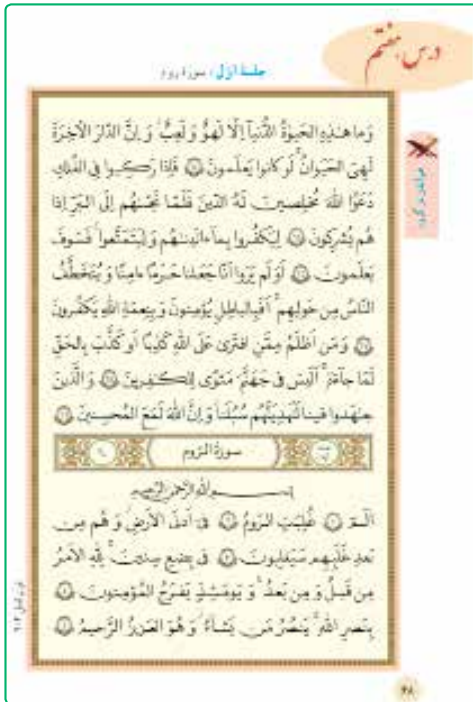 درس هفتم
جلسهٔ اوّل : سورهٔ روم
وَما هٰذِهِ الحَيٰوةُ الدُّنيآ اِلّا لَهوٌ وَ لَعِبٌ وَ اِنَّ الدّارَ الآخِرَةَ
لَهِىَ الحَيَوانُ لَو كانوا يَعلَمونَ ۶۴ فَاِذا رَكِبوا فِى الفُلكِ
دَعَوُا اللّٰهَ مُخلِصينَ لَهُ الدّينَ فَلَمّا نَجّىٰهُم اِلَى البَرِّ اِذا
هُم يُشرِكونَ ۶۵ لِيَكفُروا بِمآ ءاتَينٰهُم وَ لِيَتَمَتَّعوا فَسَوفَ
يَعلَمونَ ۶۶ اَوَلَم يَرَوا اَنّا جَعَلنا حَرَمًا ءامِنًا وَ يُتَخَطَّفُ
النّاسُ مِن حَولِهِم اَفَبِالباطِلِ يُؤمِنونَ وَ بِنِعمَةِ اللّٰهِ يَكفُرونَ
۶۷ وَ مَن اَظلَمُ مِمَّنِ افتَرىٰ عَلَى اللّٰهِ كَذِبًا اَو كَذَّبَ بِالحَقِّ
لَمّا جآءَهُ اَلَيسَ فى جَهَنَّمَ مَثوًى لِلكٰفِرينَ ۶۸ وَ الَّذينَ
جٰهَدوا فينا لَنَهدِيَنَّهُم سُبُلَنا وَ اِنَّ اللّٰهَ لَمَعَ المُحسِنينَ ۶۹
سورة الرّوم
بسم الله الرحمن الرحيم
الٓمٓ ۱ غُلِبَتِ الرّومُ ۲ فى اَدنَى الاَرضِ وَ هُم مِن
بَعدِ غَلَبِهِم سَيَغلِبونَ ۳ فى بِضعِ سِنينَ لِلّٰهِ الاَمرُ
مِن قَبلُ وَ مِن بَعدُ وَ يَومَئِذٍ يَفرَحُ المُؤمِنونَ ۴
بِنَصرِ اللّٰهِ يَنصُرُ مَن يَشآءُ وَ هُوَ العَزيزُ الرَّحيمُ ۵
۶۸